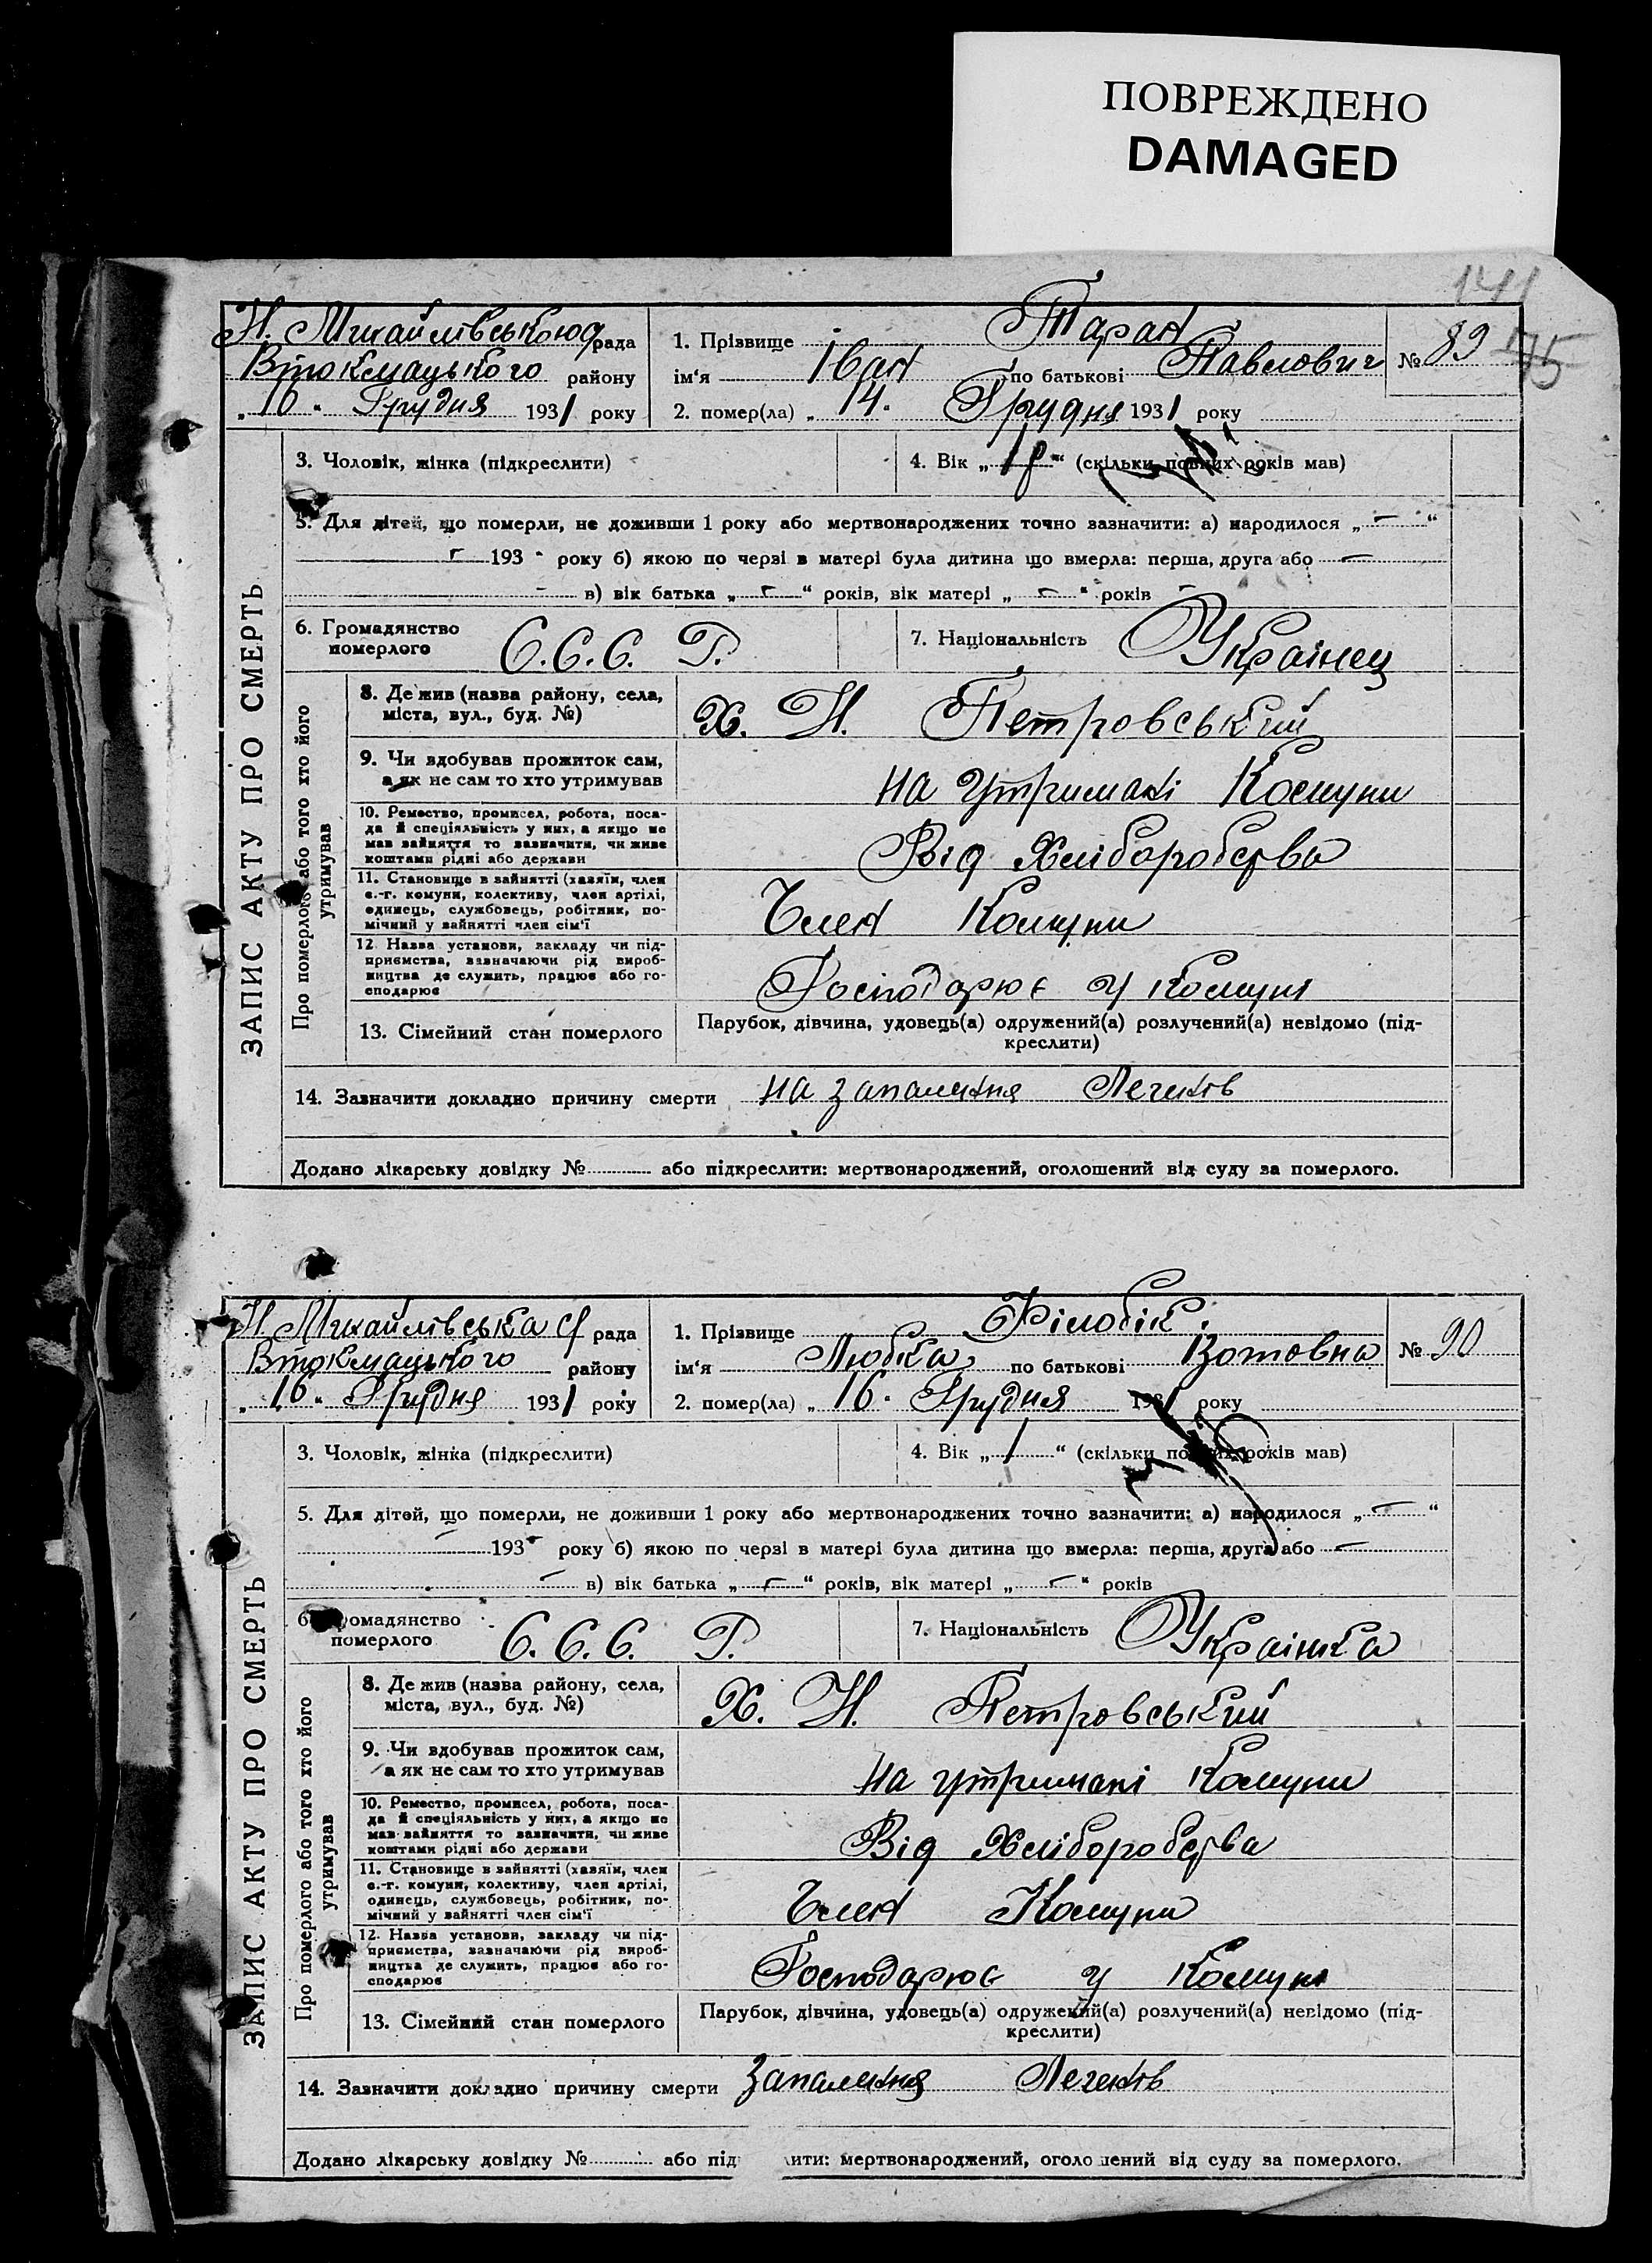 ПОВРЕЖДЕНО
DAMAGED
141
Н. Михайлівською рада
Втокмацького району
„16“ Грудня 1931 року
1. Прізвище Таран
ім‘я Іван по батькові Павлович
№ 89
2. помер(ла) „14. Грудня 1931 року
ЗАПИС АКТУ ПРО СМЕРТЬ
3. Чоловік, жінка (підкреслити)
4. Вік „1р“ (скільки повних років мав)
5. Для дітей, що померли, не доживши 1 року або мертвонароджених точно зазначити: а) народилося „—“
193 року б) якою по черзі в матері була дитина що вмерла: перша, друга або —
в) вік батька „—“ років, вік матері „—“ років
6. Громадянство померлого С.С.С. Р.
7. Національність Українец
Про померлого або того хто його утримував
8. Де жив (назва району, села,
міста, вул., буд. №)
Х. Н. Петровський
9. Чи здобував прожиток сам,
а як не сам то хто утримував
на утримані Комуни
10. Ремество, промисел, робота, поса-
да й спеціяльність у них, а якщо не
мав зайняття то зазначити, чи живе
коштами рідні або держави
Від Хліборобства
11. Становище в зайнятті (хазяїн, член
с.-г. комуни, колективу, член артілі,
одинець, службовець, робітник, по-
мічний у зайнятті член сім‘ї
Член Комуни
12. Назва установи, закладу чи під-
приємства, зазначаючи рід вироб-
ництва де служить, працює або го-
сподарює
Господарює у Комуні
13. Сімейний стан померлого
Парубок, дівчина, удовець(а) одружений(а) розлучений(а) невідомо (під-
креслити)
14. Зазначити докладно причину смерти на запалення Легенів
Додано лікарську довідку № або підкреслити: мертвонароджений, оголошений від суду за померлого.
Н Михайлівська с/ рада
Втокмацького району
„16“ Грудня 1931 року
1. Прізвище Філобік.
ім‘я Любка по батькові Зотовна
№ 90
2. помер(ла) „16. Грудня 1931 року
ЗАПИС АКТУ ПРО СМЕРТЬ
3. Чоловік, жінка (підкреслити)
4. Вік „1“ (скільки повних років мав)
5. Для дітей, що померли, не доживши 1 року або мертвонароджених точно зазначити: а) народилося „—“
193 року б) якою по черзі в матері була дитина що вмерла: перша, друга або —
в) вік батька „—“ років, вік матері „—“ років
6. Громадянство померлого С.С.С. Р.
7. Національність Українка
Про померлого або того хто його утримував
8. Де жив (назва району, села,
міста, вул., буд. №)
Х. Н. Петровський
9. Чи здобував прожиток сам,
а як не сам то хто утримував
на утримані Комуни
10. Ремество, промисел, робота, поса-
да й спеціяльність у них, а якщо не
мав зайняття то зазначити, чи живе
коштами рідні або держави
Від Хліборобства
11. Становище в зайнятті (хазяїн, член
с.-г. комуни, колективу, член артілі,
одинець, службовець, робітник, по-
мічний у зайнятті член сім‘ї
Член Комуни
12. Назва установи, закладу чи під-
приємства, зазначаючи рід вироб-
ництва де служить, працює або го-
сподарює
Господарює у Комуні
13. Сімейний стан померлого
Парубок, дівчина, удовець(а) одружений(а) розлучений(а) невідомо (під-
креслити)
14. Зазначити докладно причину смерти Запалення Легенів
Додано лікарську довідку № або під ити: мертвонароджений, оголо ений від суду за померлого.